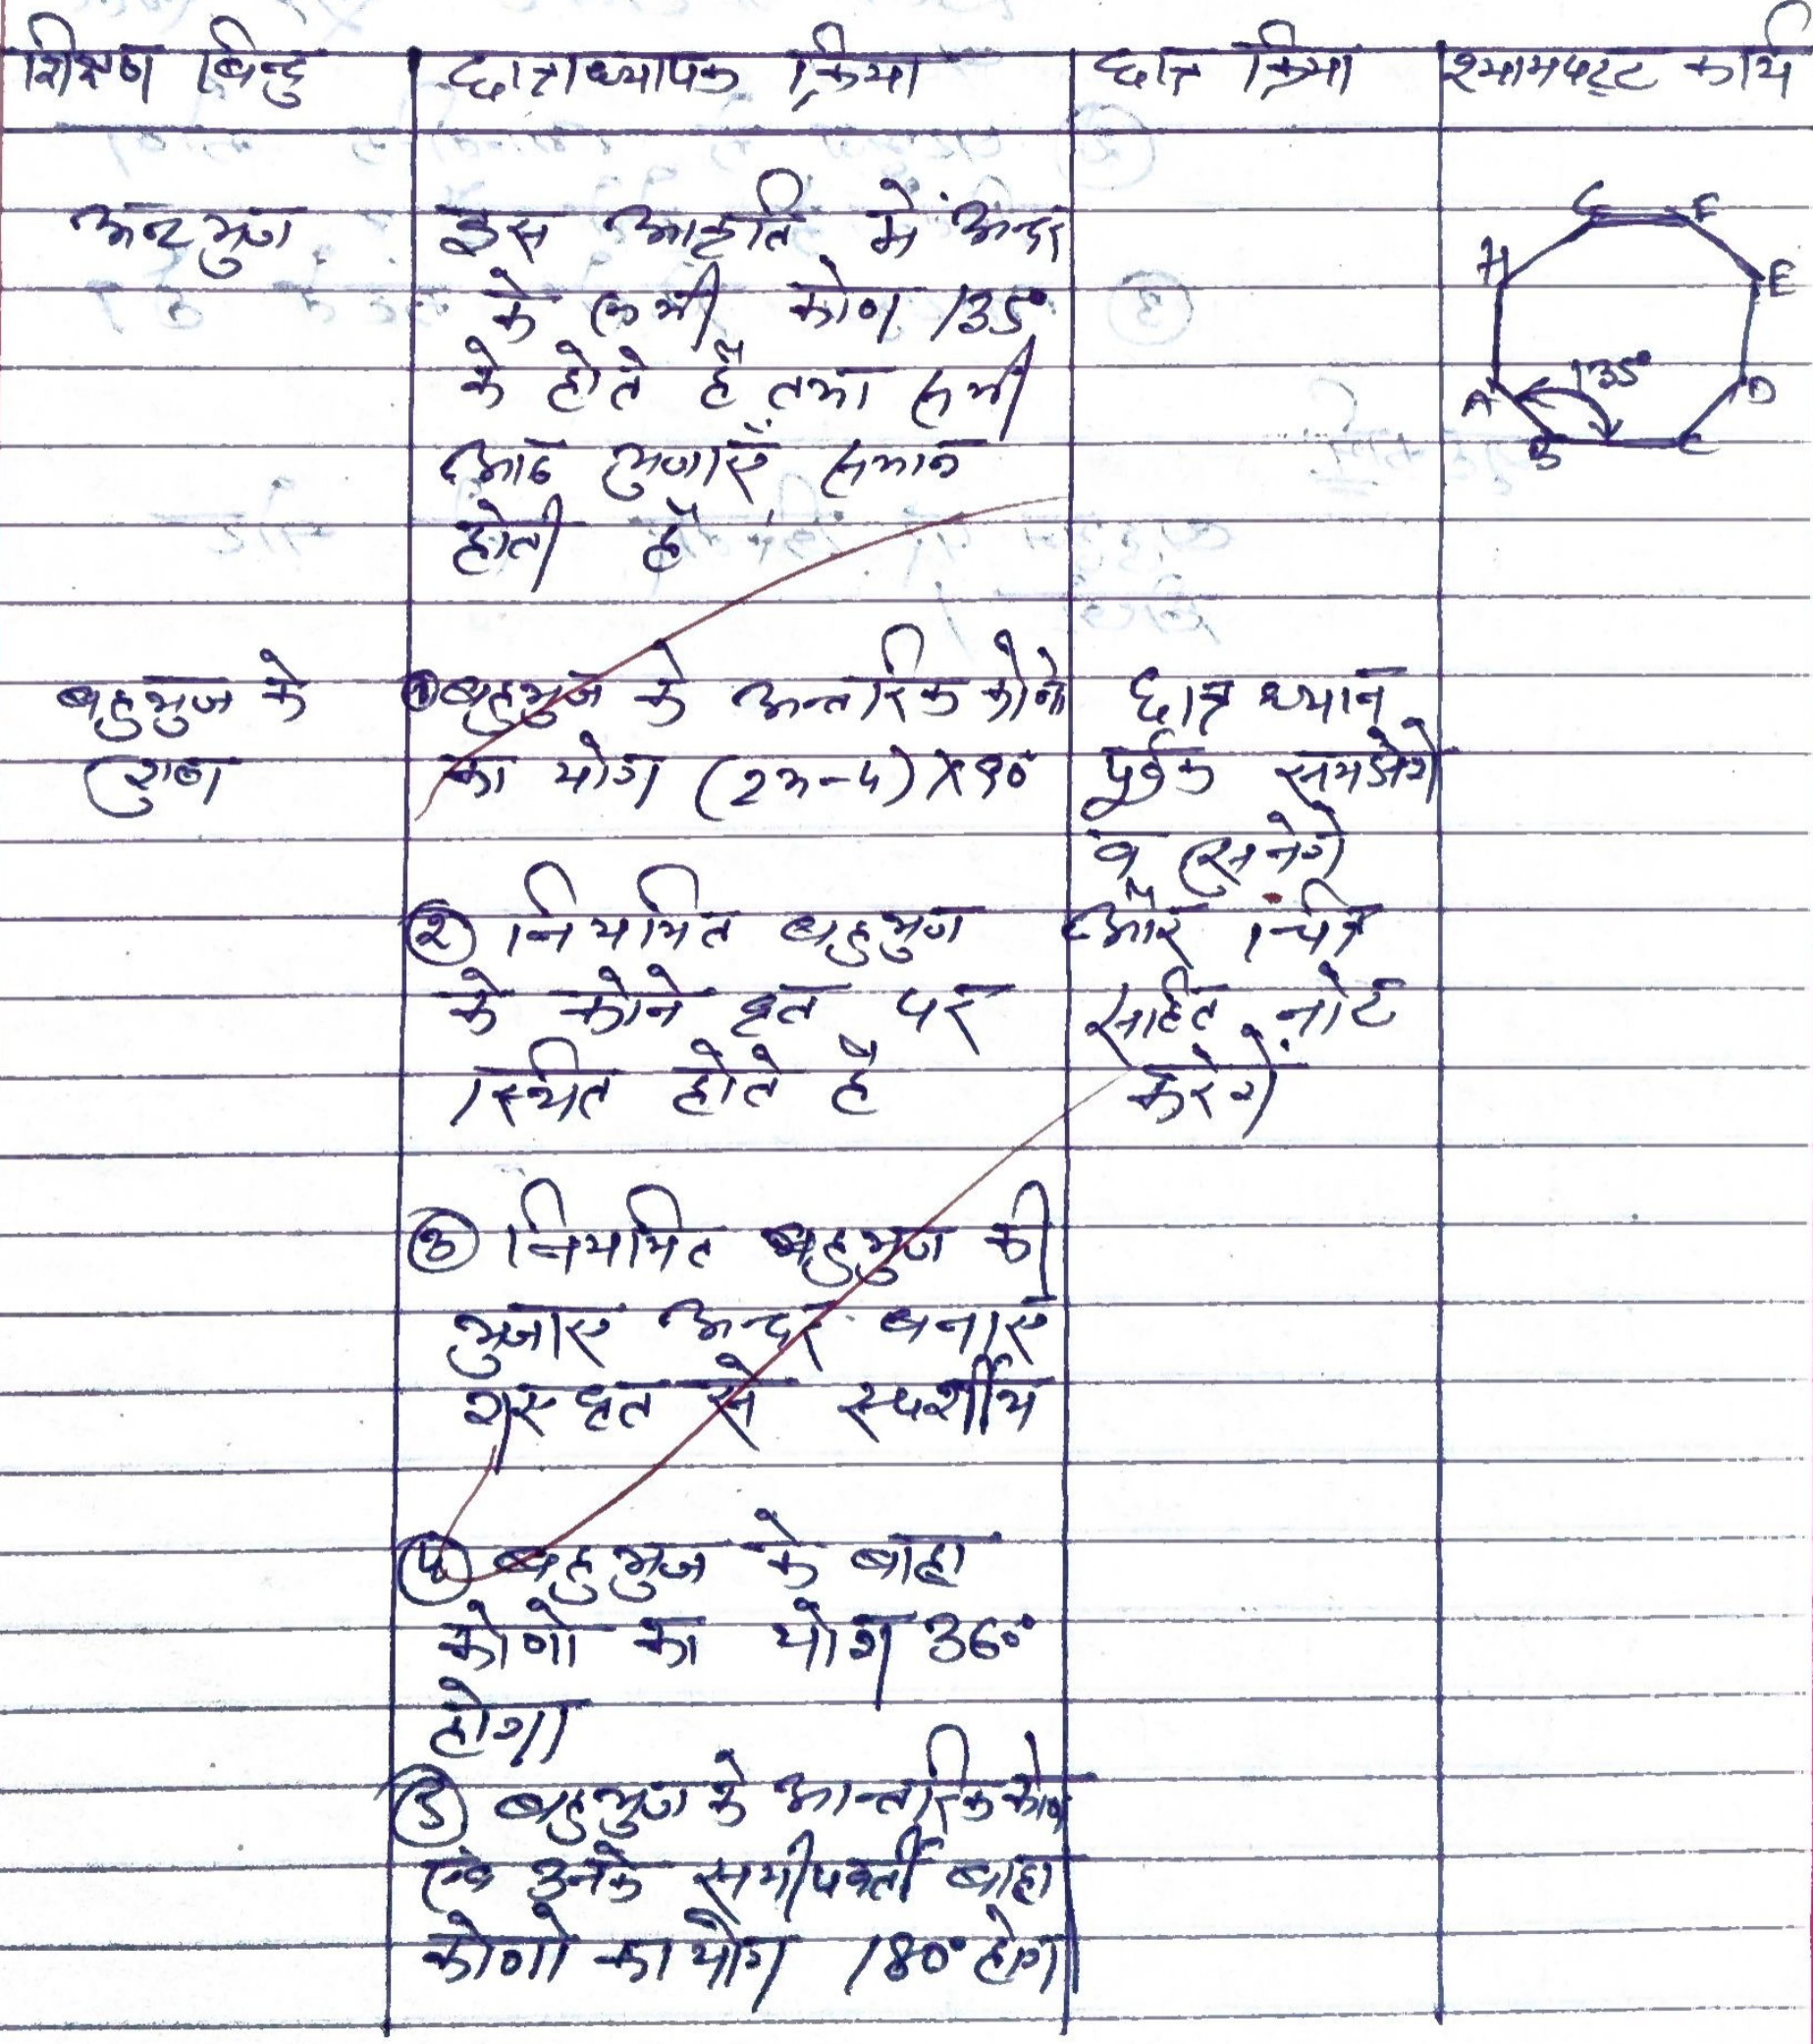 शिक्षण बिन्दु छात्राध्यापक क्रिया छात्र क्रिया श्यामपट्ट कार्य
अष्टभुज
इस आकृति में अन्दर
के सभी कोण 135°
के होते हैं तथा सभी
आठ भुजाएँ समान
होती है
G F
H E
135°
A D
B C
बहुभुज के
गुण
① बहुभुज के अन्तरिक कोनो
का योग (2n-4) X 90°
② नियमित बहुभुज
के कोने वृत पर
स्थित होते है
③ नियमित बहुभुज की
भुजाए अन्दर बनाए
गए वृत से स्पर्शीय
④ बहुभुज के बाह्य
कोणो का योग 360°
होगा
⑤ बहुभुज के आन्तरिक कोण
एंव उनके समीपवर्ती बाह्य
कोणो का योग 180° होगा
छात्र ध्यान
पूर्वक समझेगे
व सुनेगे
और चित्र
सहित नोट
करेगें